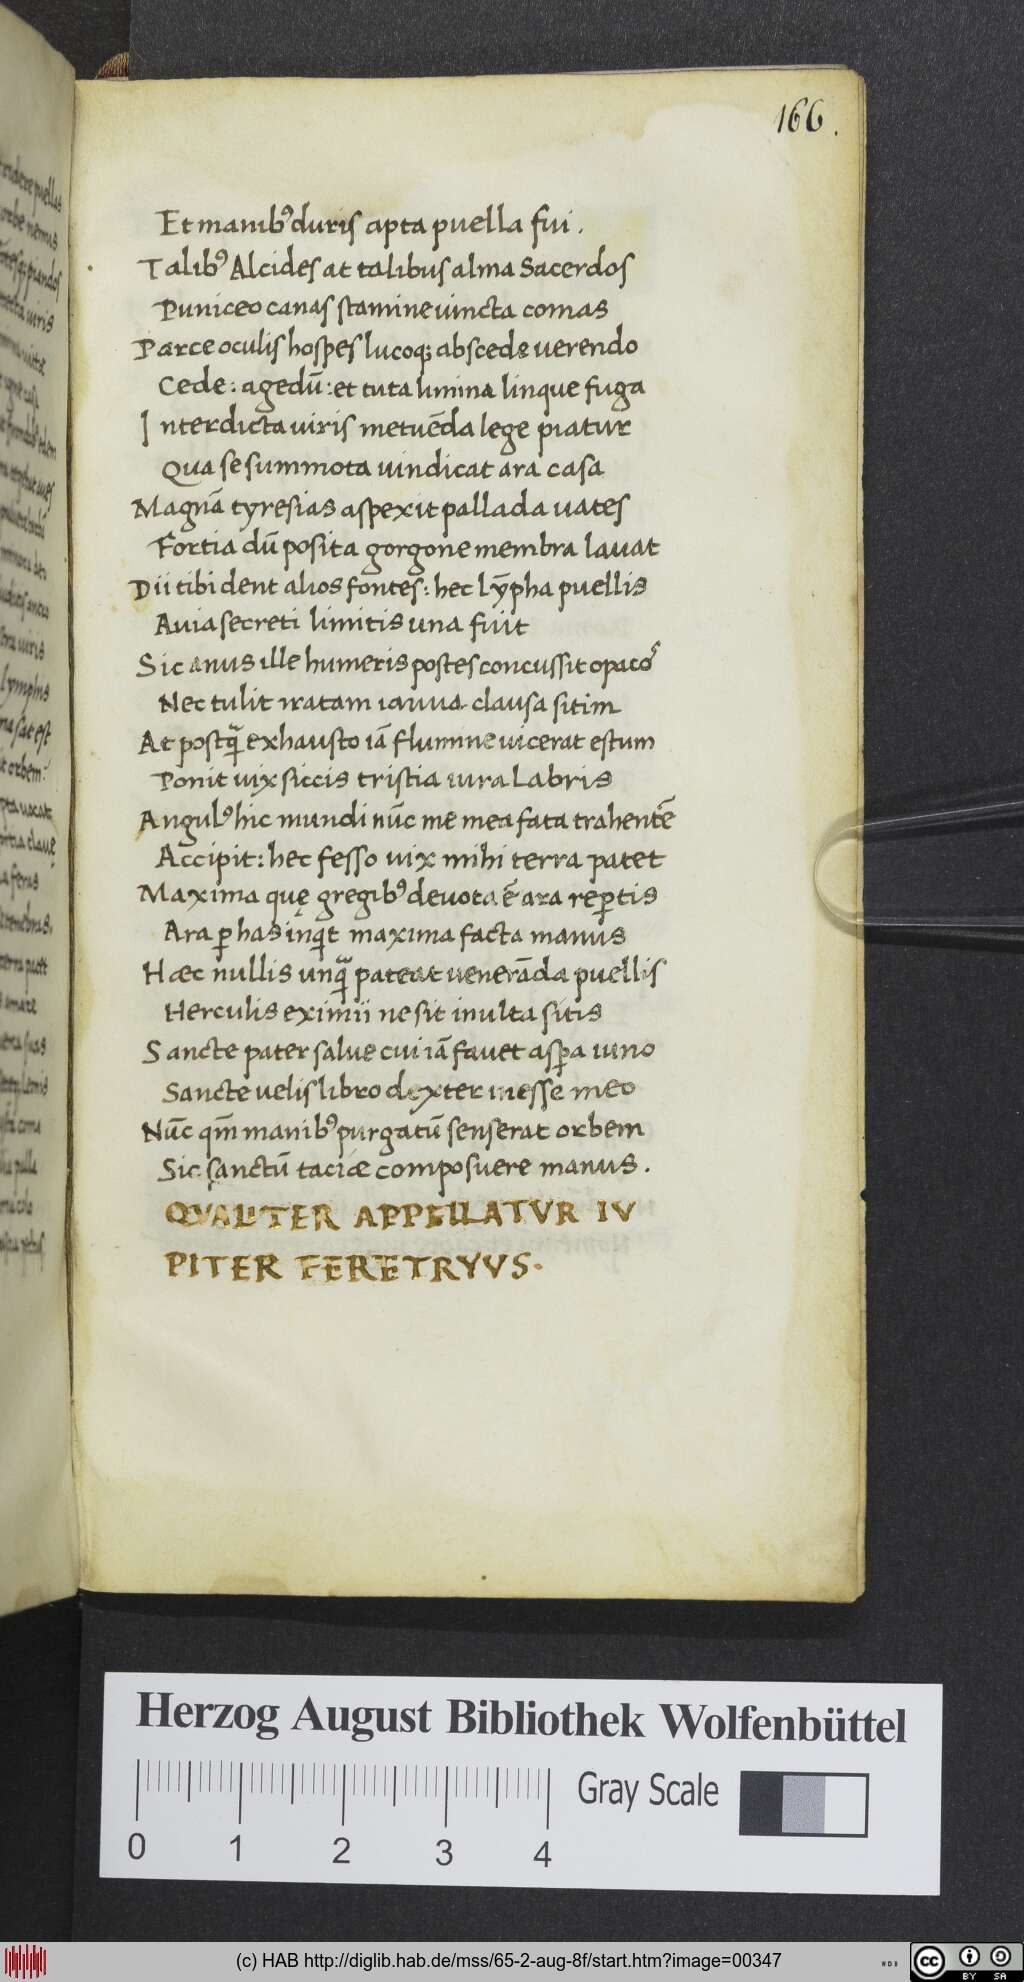 166.
Et manibꝰ duris apta puella fui.
Talibꝰ Alcides at talibus alma Sacerdos
Puniceo canas stamine uincta comas
Parce oculis hospes lucoq; abscede uerendo
Cede: agedū: et tuta limina linque fuga
Interdicta uiris metuēda lege piatur
Qua se summota uindicat ara casa
Magnā tyresias aspexit pallada uates
Fortia dū posita gorgone membra lauat
Dii tibi dent alios fontes: hec lȳpha puellis
Auia secreti limitis una fuit
Sic anus ille humeris postes concussit opacoſ
Nec tulit iratam ianua clausa sitim
At postq̄ exhausto iā flumine uicerat estum
Ponit uix siccis tristia iura labris
Angulꝰ hic mundi nūc me mea fata trahentē
Accipit: hec fesso uix mihi terra patet
Maxima quę gregibꝰ devota ē ara reꝑtis
Ara ꝑ has inqͥt maxima facta manus
Haec nullis unq̄ pateat uenerāda puellis
Herculis eximii ne sit inulta sitis
Sancte pater salue cui iā fauet asꝑa iuno
Sancte uelis libro dexter inesse meo
Nūc qm̄ manibꝰ purgatū senserat orbem
Sic sanctū taciae composuere manus.
QVALITER APPELLATVR IV
PITER FERETRYVS.
Herzog August Bibliothek Wolfenbüttel
Gray Scale
0 1 2 3 4
(c) HAB http://diglib.hab.de/mss/65-2-aug-8f/start.htm?image=00347
cc BY SA